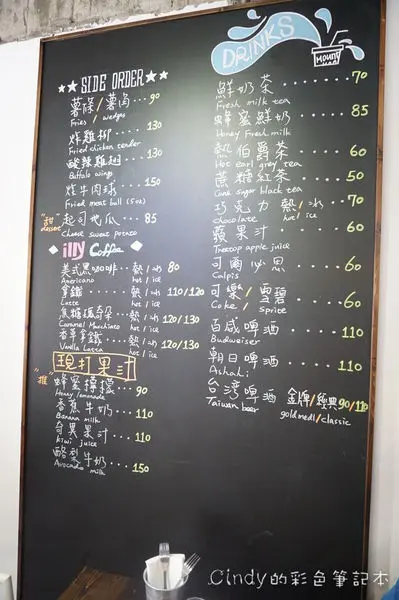 ★★ SIDE ORDER ★★
薯條/薯角 ··· 90
Fries / wedges
炸雞柳 ···· 130
Fried chicken tender
酸辣雞翅 ··· 130
Buffalo wings
炸牛肉球 ···· 150
Fried meat ball (5ea)
"甜" dessert 起司地瓜 ·· 85
Cheese sweet potato
illy Coffee
美式黑咖啡 · 熱/冰 80
Americano hot / ice
拿鐵 ···· 熱/冰 110/120
Latte hot / ice
焦糖瑪奇朵 · 熱/冰 120/130
Caramel Macchiato hot / ice
香草拿鐵 ·· 熱/冰 120/130
Vanilla Latte hot / ice
現打果汁
"推" 蜂蜜檸檬 ···· 90
Honey lemonade
香蕉牛奶 ···· 110
Banana milk
奇異果汁 ···· 110
kiwi juice
酪梨牛奶 ···· 150
Avocado milk
DRINKS
鮮奶茶 ········ 70
Fresh milk tea
蜂蜜鮮奶 ····· 85
Honey Fresh milk
熱伯爵茶 ····· 60
Hot earl grey tea
蔗糖紅茶 ····· 50
Cane sugar black tea
巧克力 熱/冰 ·· 70
chocolate hot / ice
蘋果汁 ······ 60
Treetop apple juice
可爾必思 ····· 60
Calpis
可樂/雪碧 ···· 60
Coke / sprite
百威啤酒 ····· 110
Budweiser
朝日啤酒 ····· 110
Asahi
台灣啤酒 金牌/經典 90/110
Taiwan beer gold medl/classic
Cindy的彩色筆記本